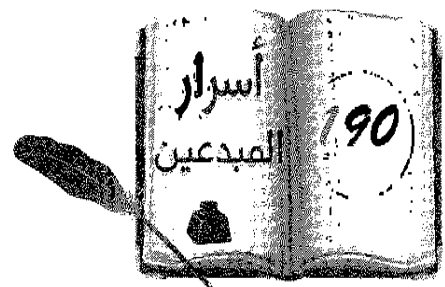 أسرار
المبدعين
190